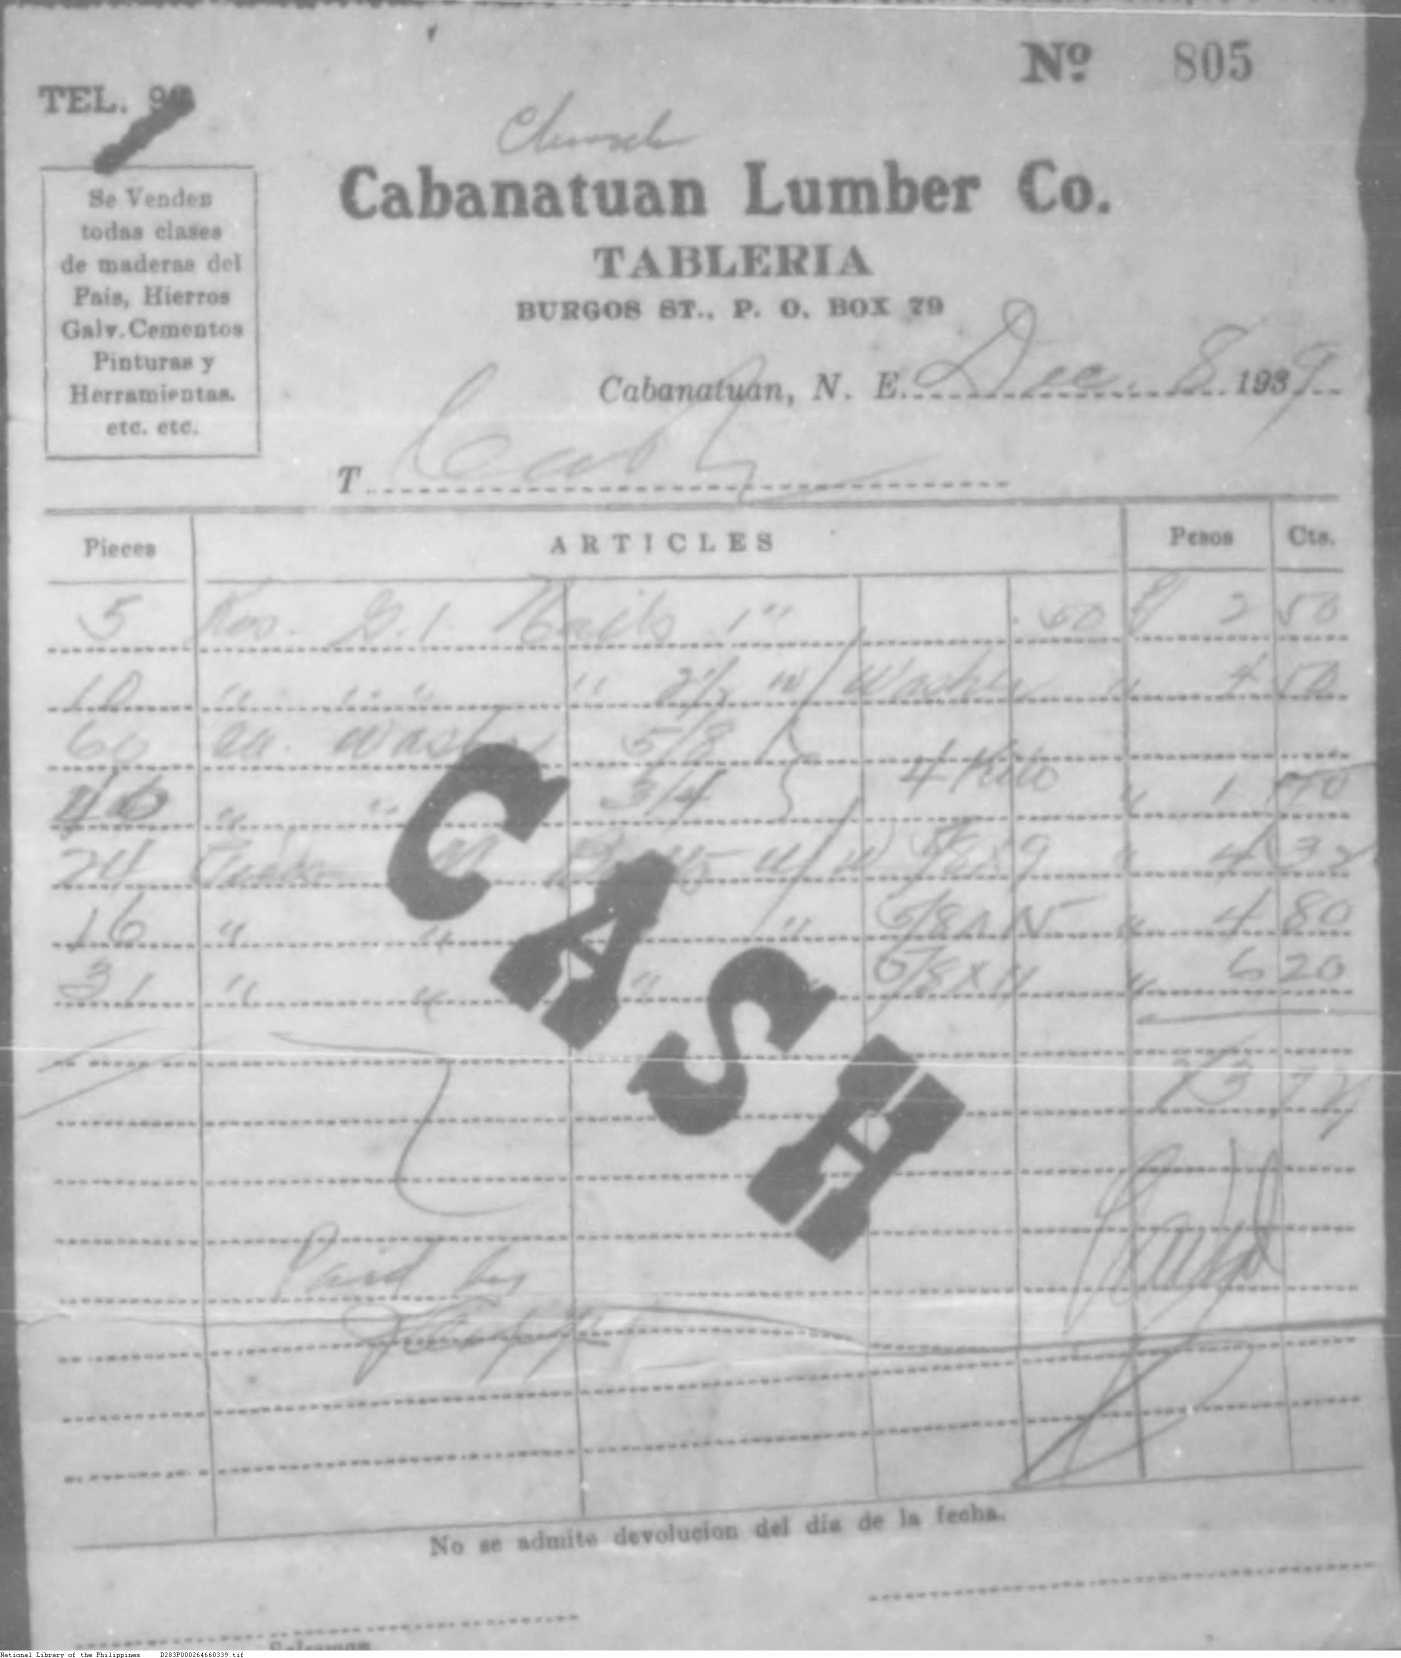 Nº 805
TEL.
Church
Cabanatuan Lumber Co.
TABLERIA
BURGOS ST., P. O. BOX 79
Se Venden
todas clases
de maderas del
Pais, Hierros
Galv. Cementos
Pinturas y
Herramientas.
etc. etc.
Cabanatuan, N. E. Dec. 8 1939
T Cash
Pieces ARTICLES Pesos Cts.
5 Kos. G.I. Nails 1" .50 ₱ 2 50
10 " " " " 2½ w/ Washer " 4 50
60 ea. Washer 5/8
46 " " 3/4 4 Kilo " 1 40
24 w/ w 9 " 4 32
16 " " " 5/8 x 15 " 4 80
31 " " " " 5/8 x 11 " 6 20
23 72
CASH
Paid by
Paid
No se admite devolucion del dia de la fecha.
Salesman
National Library of the Philippines D283P000264660339.tif